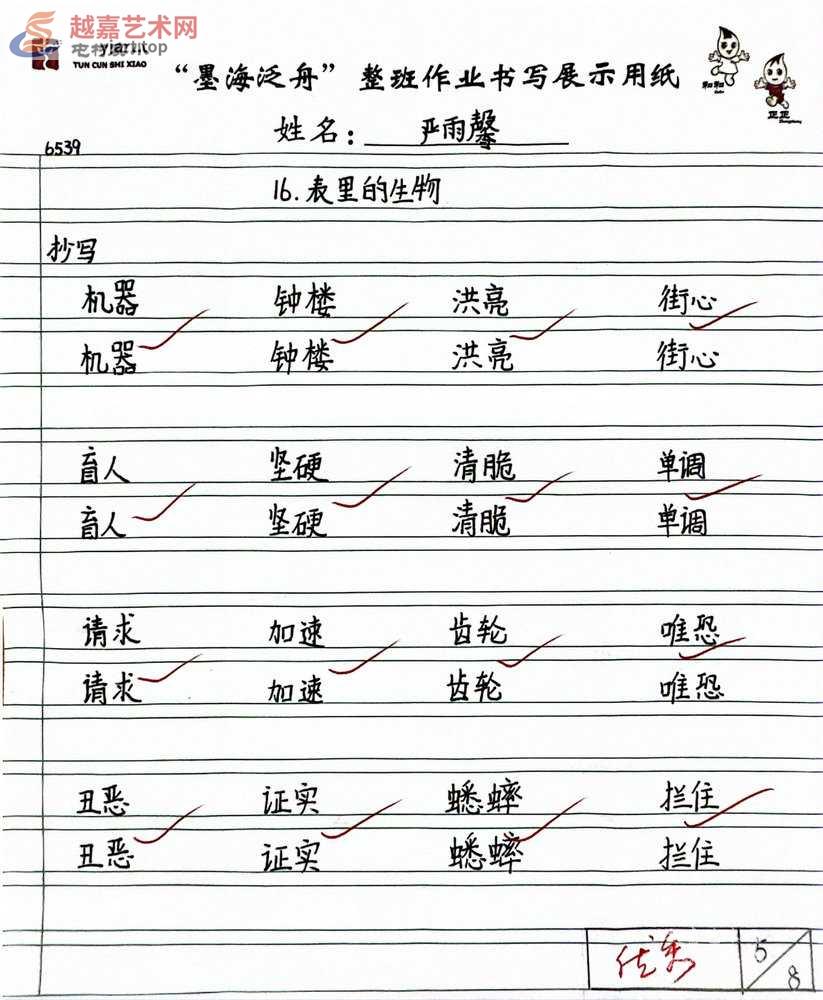 越嘉艺术网
yjart.top
TUN CUN SHI XIAO
“墨海泛舟”整班作业书写展示用纸
和和
正正
姓名：严雨馨
6539
16.表里的生物
抄写
机器 钟楼 洪亮 街心
机器 钟楼 洪亮 街心
盲人 坚硬 清脆 单调
盲人 坚硬 清脆 单调
请求 加速 齿轮 唯恐
请求 加速 齿轮 唯恐
丑恶 证实 蟋蟀 拦住
丑恶 证实 蟋蟀 拦住
优秀 5/8